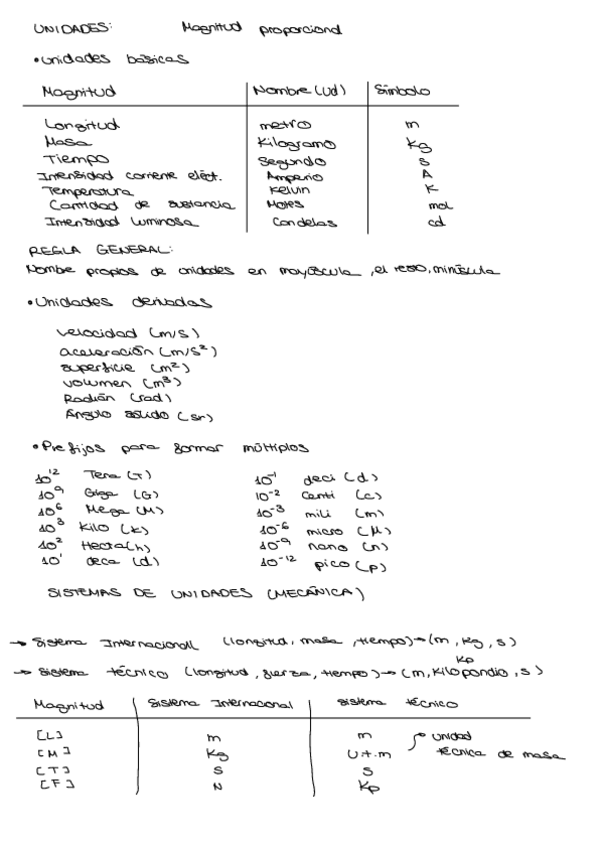 UNIDADES: Magnitud proporcional
• Unidades básicas
Magnitud Nombre (Ud) Símbolo
Longitud metro m
Masa Kilogramo Kg
Tiempo Segundo s
Intensidad corriente eléct. Amperio A
Temperatura Kelvin K
Cantidad de sustancia Moles mol
Intensidad Luminosa Candelas cd
REGLA GENERAL:
Nombre propios de unidades en mayúscula, el resto, minúscula
• Unidades derivadas
velocidad (m/s)
aceleración (m/s²)
superficie (m²)
volumen (m³)
Radián (rad)
Ángulo sólido (sr)
• Prefijos para formar múltiplos
10¹² Tera (T) 10⁻¹ deci (d)
10⁹ Giga (G) 10⁻² Centi (c)
10⁶ Mega (M) 10⁻³ mili (m)
10³ Kilo (k) 10⁻⁶ micro (μ)
10² Hecta (h) 10⁻⁹ nano (n)
10¹ deca (d) 10⁻¹² pico (p)
SISTEMAS DE UNIDADES (MECÁNICA)
→ Sistema Internacional (longitud, masa, tiempo) → (m, kg, s)
Kp
→ Sistema técnico (longitud, fuerza, tiempo) → (m, Kilopondio, s)
Magnitud Sistema Internacional sistema técnico
[L] m m unidad
[M] Kg U.t.m técnica de masa
[T] s s
[F] N Kp